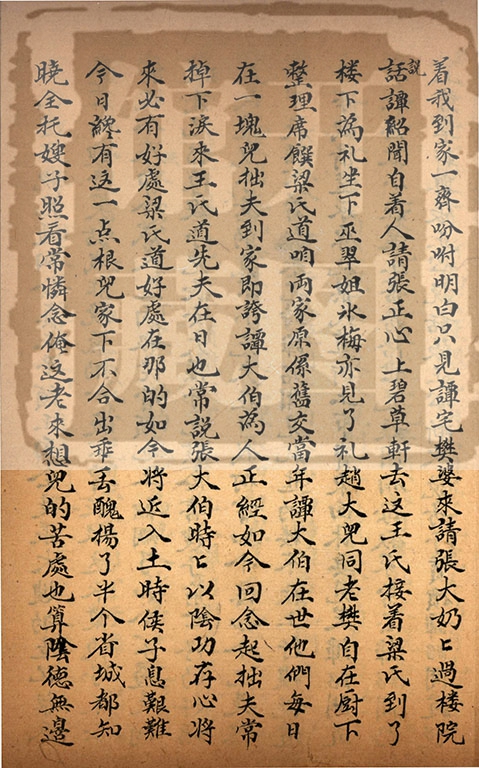 着我到家一齊吩咐明白只見譚宅樊婆來請張大奶〻過楼院
說話譚紹聞自着人請張正心上碧草軒去这王氏接着梁氏到了
楼下為礼坐下巫翠姐氷梅亦見了礼趙大兒同老樊自在厨下
整理席饌梁氏道咱両家原係舊交當年譚大伯在世他們每日
在一塊兒拙夫到家即誇譚大伯為人正經如今回念起拙夫常
掉下淚來王氏道先夫在日也常説張大伯時〻以陰功存心将
來必有好處梁氏道好處在那的如今将近入土時候子息艱難
今日纔有这一点根兒家下不合出乖丢醜揚了半个省城都知
曉全托嫂子照看常憐念俺这老來想兒的苦處也算陰德無邊